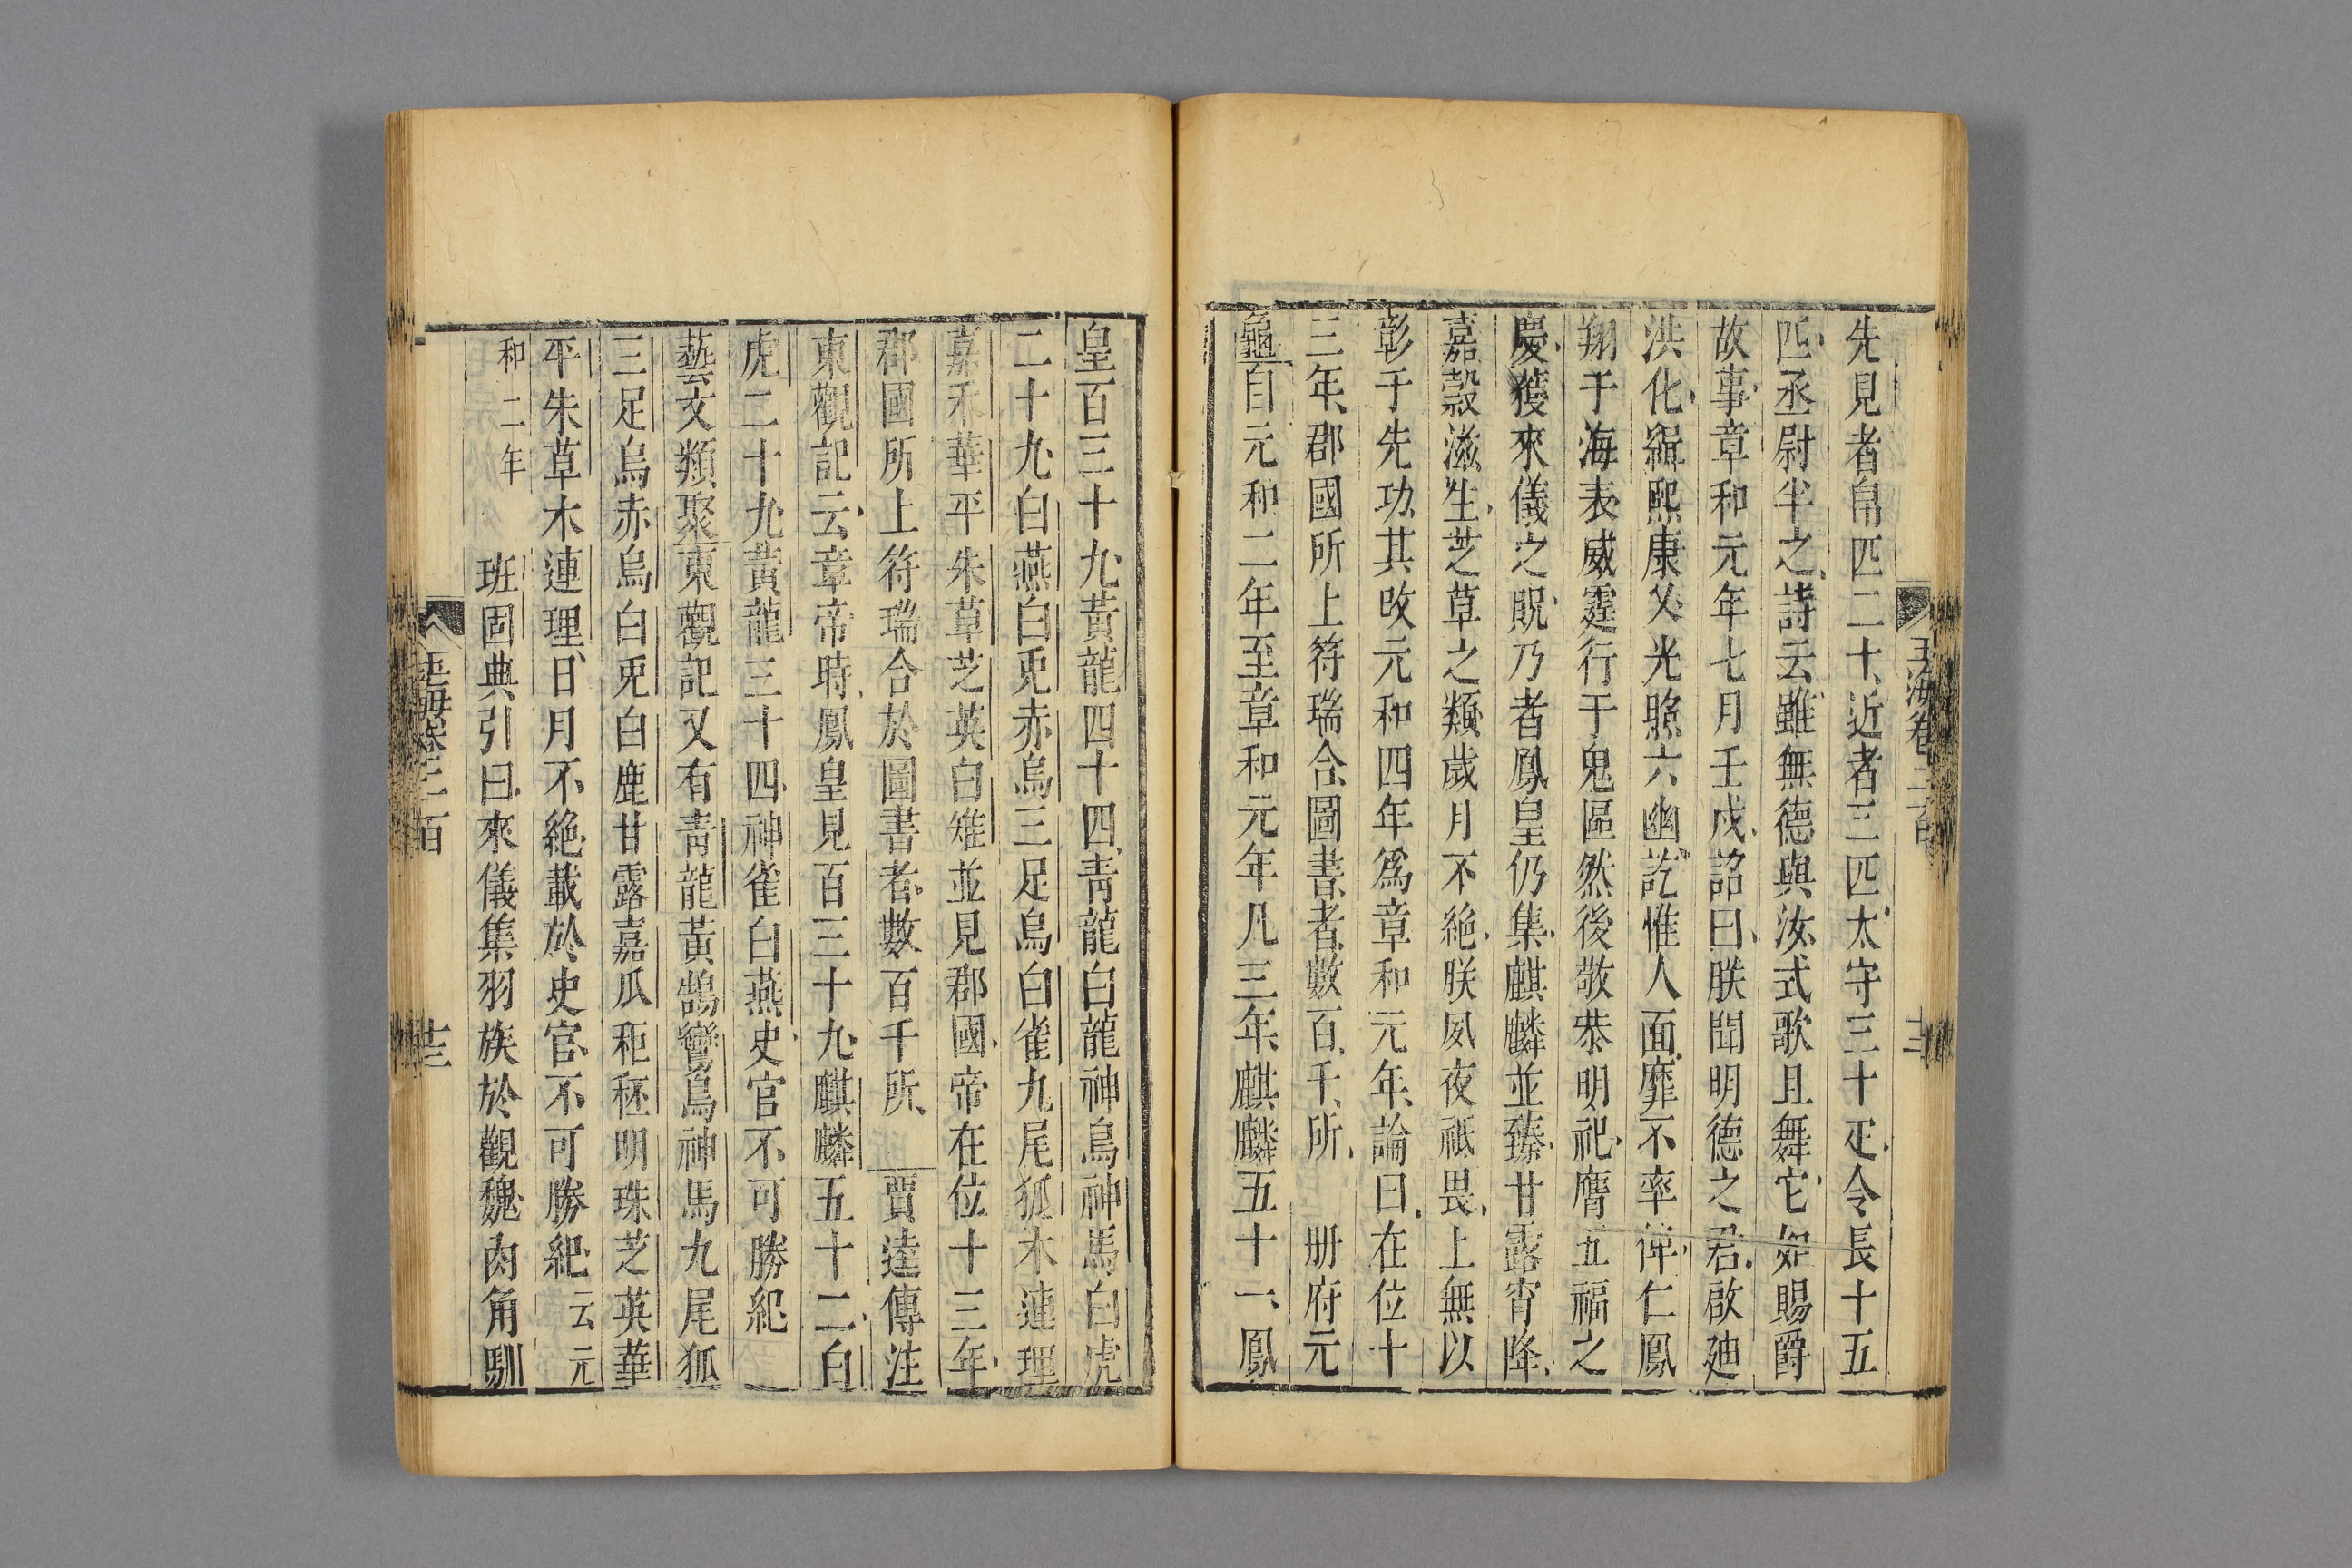 先見者帛匹二十近者三匹太守三十疋令長十五
匹丞尉半之詩云雖無德與汝式歌且舞它如賜爵
故事章和元年七月壬戌詔曰朕聞明德之君啟迪
洪化緝熙康乂光照六幽訖惟人面靡不率俾仁鳳
翔于海表威霆行于鬼區然後敬恭明祀膺五福之
慶獲來儀之貺乃者鳳皇仍集麒麟並臻甘露宵降
嘉穀滋生芝草之類歲月不絶朕夙夜祗畏上無以
彰于先功其改元和四年爲章和元年論曰在位十
三年郡國所上符瑞合圖書者數百千所 册府元
龜自元和二年至章和元年凡三年麒麟五十一鳳
玉海卷二百
皇百三十九黃龍四十四青龍白龍神烏神馬白虎
二十九白燕白兎赤烏三足烏白雀九尾狐木連理
嘉禾華平朱草芝英白雉並見郡國帝在位十三年
郡國所上符瑞合於圖書者數百千所 賈逵傳注
東觀記云章帝時鳳皇見百三十九麒麟五十二白
虎二十九黃龍三十四神雀白燕史官不可勝紀
藝文類聚東觀記又有青龍黃鵠鸞鳥神馬九尾狐
三足烏赤烏白兎白鹿甘露嘉瓜秬秠明珠芝英華
平朱草木連理日月不絶載於史官不可勝紀云元
和二年 班固典引曰來儀集羽族於觀魏肉角馴
玉海卷二百